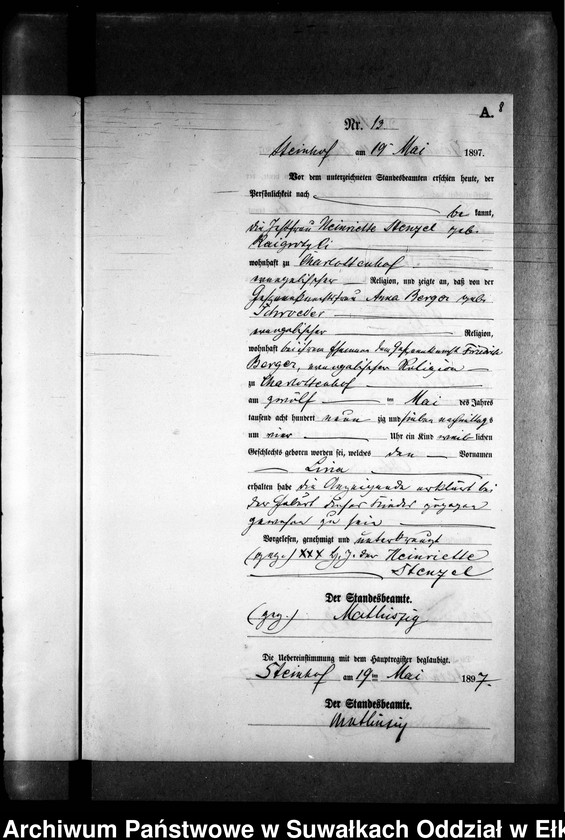 A. 8
Nr. 13
Steinhof am 19 Mai 1897.
Vor dem unterzeichneten Standesbeamten erschien heute, der
Persönlichkeit nach
be kannt,
die Henriette Stenzel geb.
wohnhaft zu Charlottenhof
evangelischer Religion, und zeigte an, daß von der
Anna Berger geb.
Schroeder
evangelischer Religion,
wohnhaft bei ihrem Ehemann dem Gespannknecht Friedrich
Berger, evangelischer Religion
zu Charlottenhof
am zwölf ten Mai des Jahres
tausend acht hundert neun zig und sieben nachmittags
um vier Uhr ein Kind weib lichen
Geschlechts geboren worden sei, welches den Vornamen
Lina
erhalten habe die Anzeigende erklärt bei
der Geburt dieses Kindes zugegen
gewesen zu sein
Vorgelesen, genehmigt und unterkreuzt
(gez.) XXX H. Z. der Heinriette
Stenzel
Der Standesbeamte.
(gez.)
Die Uebereinstimmung mit dem Hauptregister beglaubigt.
Steinhof am 19ten Mai 1897.
Der Standesbeamte.
Archiwum Państwowe w Suwałkach Oddział w Ełk